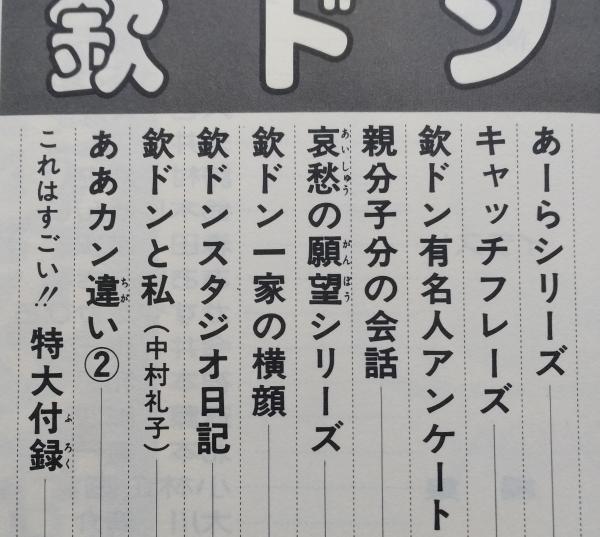 欽ドン
あーらシリーズ
キャッチフレーズ
欽ドン有名人アンケート
親分子分の会話
哀愁の願望シリーズ
欽ドン一家の横顔
欽ドンスタジオ日記
欽ドンと私（中村礼子）
ああカン違い②
これはすごい!! 特大付録